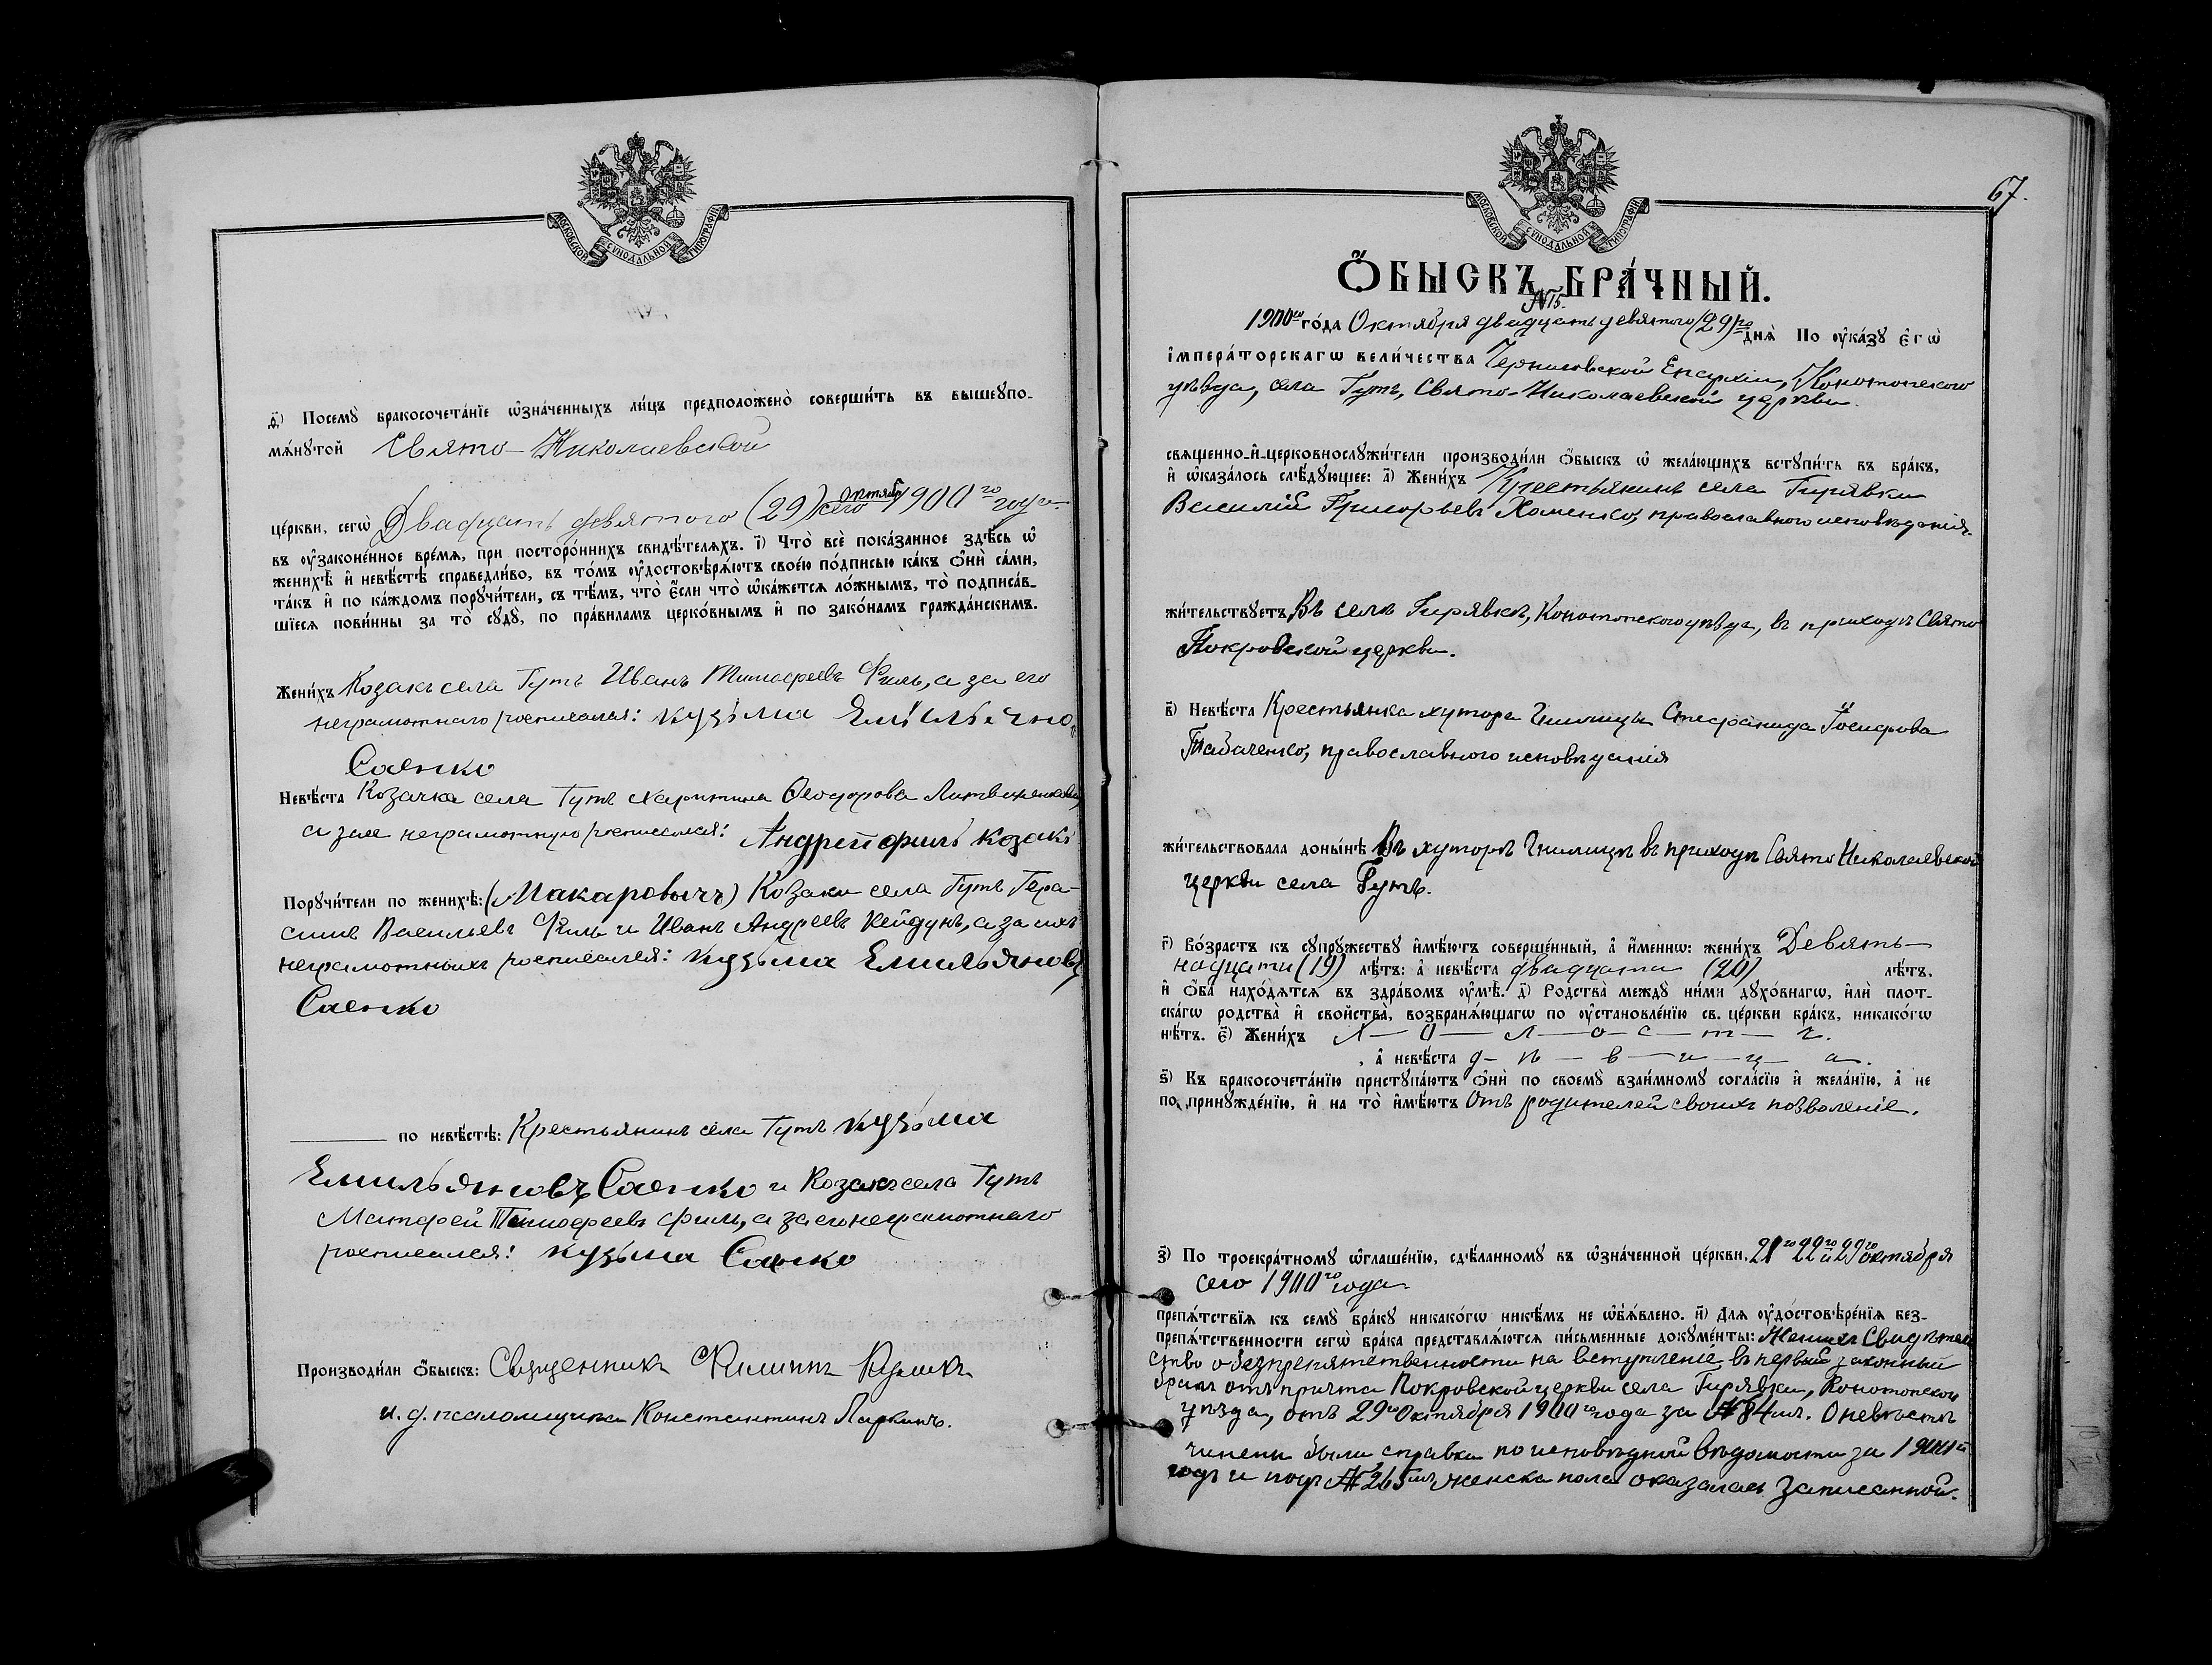 МОСКОВСКОЙ СѴНОДАЛЬНОЙ ТИПОГРАФІИ
д҃) Посемꙋ̀ бракосочета́нїе ѡ҆зна́ченныхъ ли́цъ предположено̀ соверши́ть въ вышеꙋпо-
мѧ́нꙋтой Свято-Николаевской
це́ркви, сегѡ̀ Двадцать девятого (29) сего октября 1900го года
въ ᲂу҆законе́нное вре́мѧ, при посторо́ннихъ свидѣ́телѧхъ. і҃) Что̀ всѐ пока́занное здѣ́сь ѡ҆
женихѣ̀ и҆ невѣ́стѣ справедли́во, въ то́мъ ᲂу҆достовѣрѧ́ютъ свое́ю по́дписью ка́къ ѻ҆нѝ са́ми,
та́къ и҆ по ка́ждомъ порꙋчи́тели, съ тѣ́мъ, что̀ є҆́сли что̀ ѡ҆ка́жетсѧ ло́жнымъ, то̀ подписа́в-
шїесѧ пови́нны за то̀ сꙋдꙋ̀, по пра́виламъ церко́внымъ и҆ по зако́намъ гражда́нскимъ.
Жени́хъ Козакъ села Гутъ Иванъ Тимофеевъ Филь, а за его
неграмотнаго росписался: Кузьма Емильяно
Саенко
Невѣ́ста Козачка села Гутъ Харитина Ѳеодорова Литвиненкова
а за нея неграмотную росписался: Андрей филь козакъ
Порꙋчи́тели по женихѣ̀: (Макаровычъ) Козаки села Гутъ Гера-
симъ Васильевъ Филь и Иванъ Андреевъ Кейдунъ, а за ихъ
неграмотныхъ росписался: Кузьма Емильяновъ
Саенко
по невѣ́стѣ: Крестьянинъ села Гутъ Кузьма
Емильяновъ Саенко и Козакъ села Гутъ
Матфей Тимофеевъ филь, а за его неграмотнаго
росписался: Кузьма Саенко
Производи́ли ѻ҆́быскъ: Священникъ Филиппъ
и. д. псаломщика Константинъ Ларкинъ.
67.
МОСКОВСКОЙ СѴНОДАЛЬНОЙ ТИПОГРАФІИ
Ѻ҆БЫСКЪ БРА́ЧНЫЙ.
№ 15.
1900го го́да Октября двадцать девятого (29)го днѧ̀ По ᲂу҆ка́зꙋ є҆гѡ̀
і҆мпера́торскагѡ вели́чества Черниговской Епархіи, Конотопского
уѣзда, села Гутъ, Свято-Николаевской церкви.
свѧщенно-и҆-церковнослꙋжи́тели производи́ли ѻ҆́быскъ ѡ҆ жела́ющихъ встꙋпи́ть въ бра́къ,
и҆ ѡ҆каза́лось слѣ́дꙋющее: а҃) Жени́хъ Крестьянинъ села Гирявки
Василій Григорьевъ Хоменко, православного исповѣданія.
жи́тельствꙋетъ Въ селѣ Гирявкѣ, Конотопского уѣзда, въ приходѣ Свято
Покровской церкви.
в҃) Невѣ́ста Крестьянка хутора Гнилицы Стефанида Іосифова
Ткаченко, православного исповѣданія
жи́тельствовала доны́нѣ Въ хуторѣ Гнилицѣ въ приходѣ Свято Николаевской
церкви села Гутъ.
г҃) Во́зрастъ къ сꙋпрꙋ́жествꙋ и҆мѣ́ютъ соверше́нный, а҆ и҆́меннѡ: жени́хъ Девять-
надцати (19) лѣ́тъ: а҆ невѣ́ста двадцати (20) лѣ́тъ,
и҆ ѻ҆́ба нахо́дѧтсѧ въ здра́вомъ ᲂу҆мѣ̀. д҃) Родства̀ междꙋ̀ ни́ми дꙋхо́внагѡ, и҆лѝ плот-
ска́гѡ родства̀ и҆ свойства̀, возбранѧ́ющагѡ по ᲂу҆становле́нїю св. це́ркви бра́къ, никако́гѡ
нѣ́тъ. є҃) Жени́хъ Х-о-л-о-с-т-ъ.
, а҆ невѣ́ста д-ѣ-в-и-ц-а.
ѕ҃) Къ бракосочета́нїю пристꙋпа́ютъ ѻ҆нѝ по своемꙋ̀ взаи́мномꙋ согла́сїю и҆ жела́нїю, а҆ не
по принꙋжде́нїю, и҆ на то̀ и҆мѣ́ютъ Отъ родителей своихъ позволеніе.
з҃) По троекра́тномꙋ ѡ҆глаше́нїю, сдѣ́ланномꙋ въ ѡ҆зна́ченной це́ркви, 21го 22го и 29го октября
сего 1900го года
препѧ́тствїѧ къ семꙋ̀ бра́кꙋ никако́гѡ никѣ́мъ не ѡ҆б̾ѧ́влено. и҃) Длѧ ᲂу҆достовѣре́нїѧ без-
препѧ́тственности сегѡ̀ бра́ка представлѧ́ютсѧ пи́сьменные докꙋме́нты: Женихъ Свидѣтель
ство о безпрепятственности на вступленіе въ первый законный
бракъ отъ причта Покровской церкви села Гирявки, Конотопского
уѣзда, отъ 29го Октября 1900го года за № 84мъ. О невѣстѣ
чинены были справки по исповѣдной вѣдомости за 1900й
годъ и подъ № 265мъ женска пола оказалась записанной.